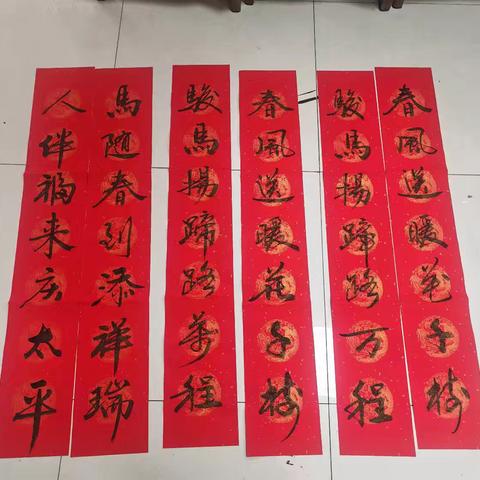 春風送暖花千樹
駿馬揚蹄路万程
春風送暖花千樹
駿馬揚蹄路萬程
馬随春到添祥瑞
人伴福来庆太平